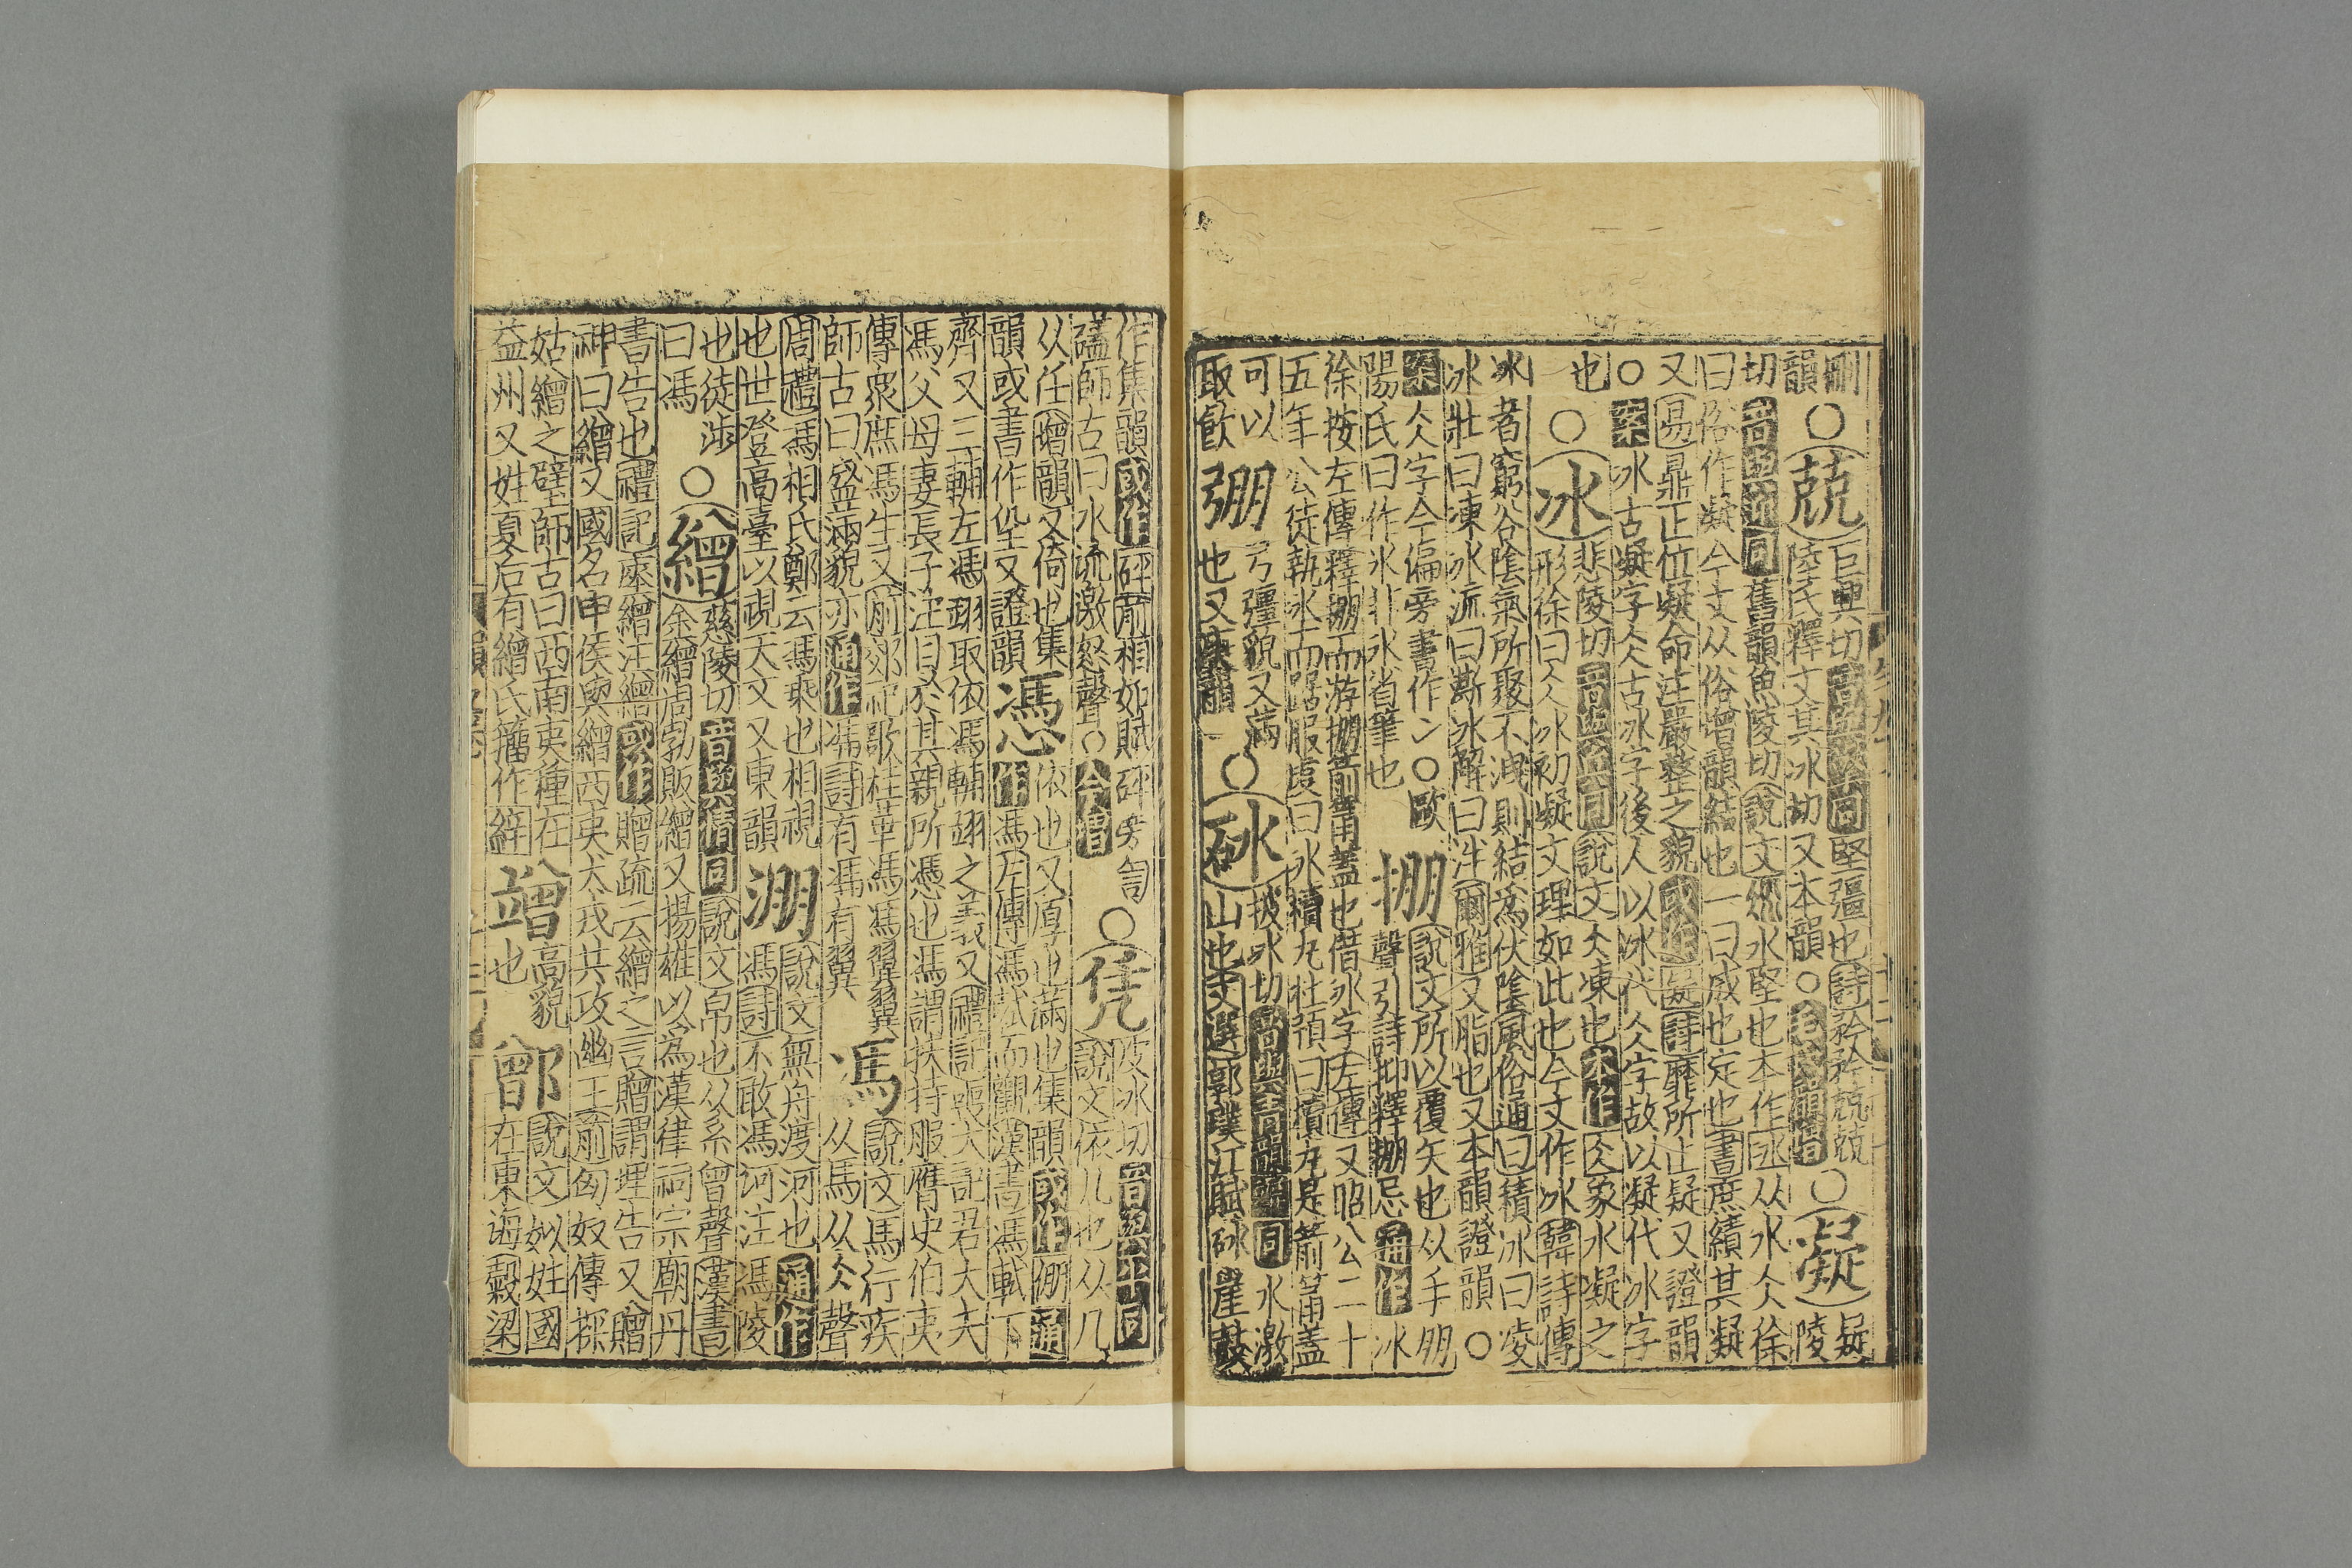 刪
韻
○兢
巨興切音與同堅彊也詩矜矜兢兢
陸氏釋文其冰切又本韻○毛氏韻增
○凝
疑
陵
切音與同舊韻魚陵切說文水堅也本作冰从水仌徐
曰俗作凝今文从俗增韻結也一曰成也定也書庶績其凝
又易鼎正位凝命注嚴整之貌或作疑詩靡所止疑又證韻
○案冰古凝字仌古冰字後人以冰代仌字故以凝代冰字
也
○冰
悲陵切音與同說文仌凍也本作仌象水凝之
形徐曰仌冰初凝文理如此也今文作冰韓詩傳
冰者窮谷陰氣所聚不洩則結為伏陰風俗通曰積冰曰凌
冰壯曰凍冰流曰澌冰解曰泮爾雅又脂也又本韻證韻○
案仌字今偏旁書作冫○歐
陽氏曰作氷非氷省筆也
掤
說文所以覆矢也从手朋
聲引詩抑釋掤忌通作冰
徐按左傳釋掤而游掤箭筩蓋也借冰字左傳又昭公二十
五年公徒執冰而踞服虔曰冰櫝丸杜預曰櫝丸是箭筩蓋
可以
取飲
弸
弓彊貌又滿
也又庚韻
○砯
披冰切音與同水激
山也文選郭璞江賦砯崖鼓
作集韻或作砰前相如賦砰磅訇
礚師古曰水流激怒聲○今增
○凭
皮冰切音與同
說文依几也从几
从任增韻又倚也集
韻或書作凴又證韻
憑
依也又厚也滿也集韻或作傰通
作馮左傳馮軾而觀漢書馮軾下
齊又三輔左馮翊取依馮輔翊之義又禮記喪大記君大夫
馮父母妻長子注目於其親所馮也馮謂扶持服膺史伯夷
傳衆庶馮生又前郊祀歌桂華馮馮翼翼
師古曰盛滿貌亦通作馮詩有馮有翼
馮
說文馬行疾
从馬从仌聲
周禮馮相氏鄭云馮乘也相視
也世登高臺以視天文又東韻
淜
說文無舟渡河也通作
馮詩不敢馮河注馮陵
也徒涉
曰馮
○繒
慈陵切音與同說文帛也从糸曾聲漢書
余繒周勃販繒又揚雄以為漢律祠宗廟丹
書告也禮記瘞繒注繒或作贈疏云繒之言贈謂埋告又贈
神曰繒又國名申侯與繒西夷犬戎共攻幽王前匈奴傳探
姑繒之壁師古曰西南夷種在
益州又姓夏后有繒氏籀作䋱
竲
高貌
也
鄫
說文姒姓國
在東海穀梁